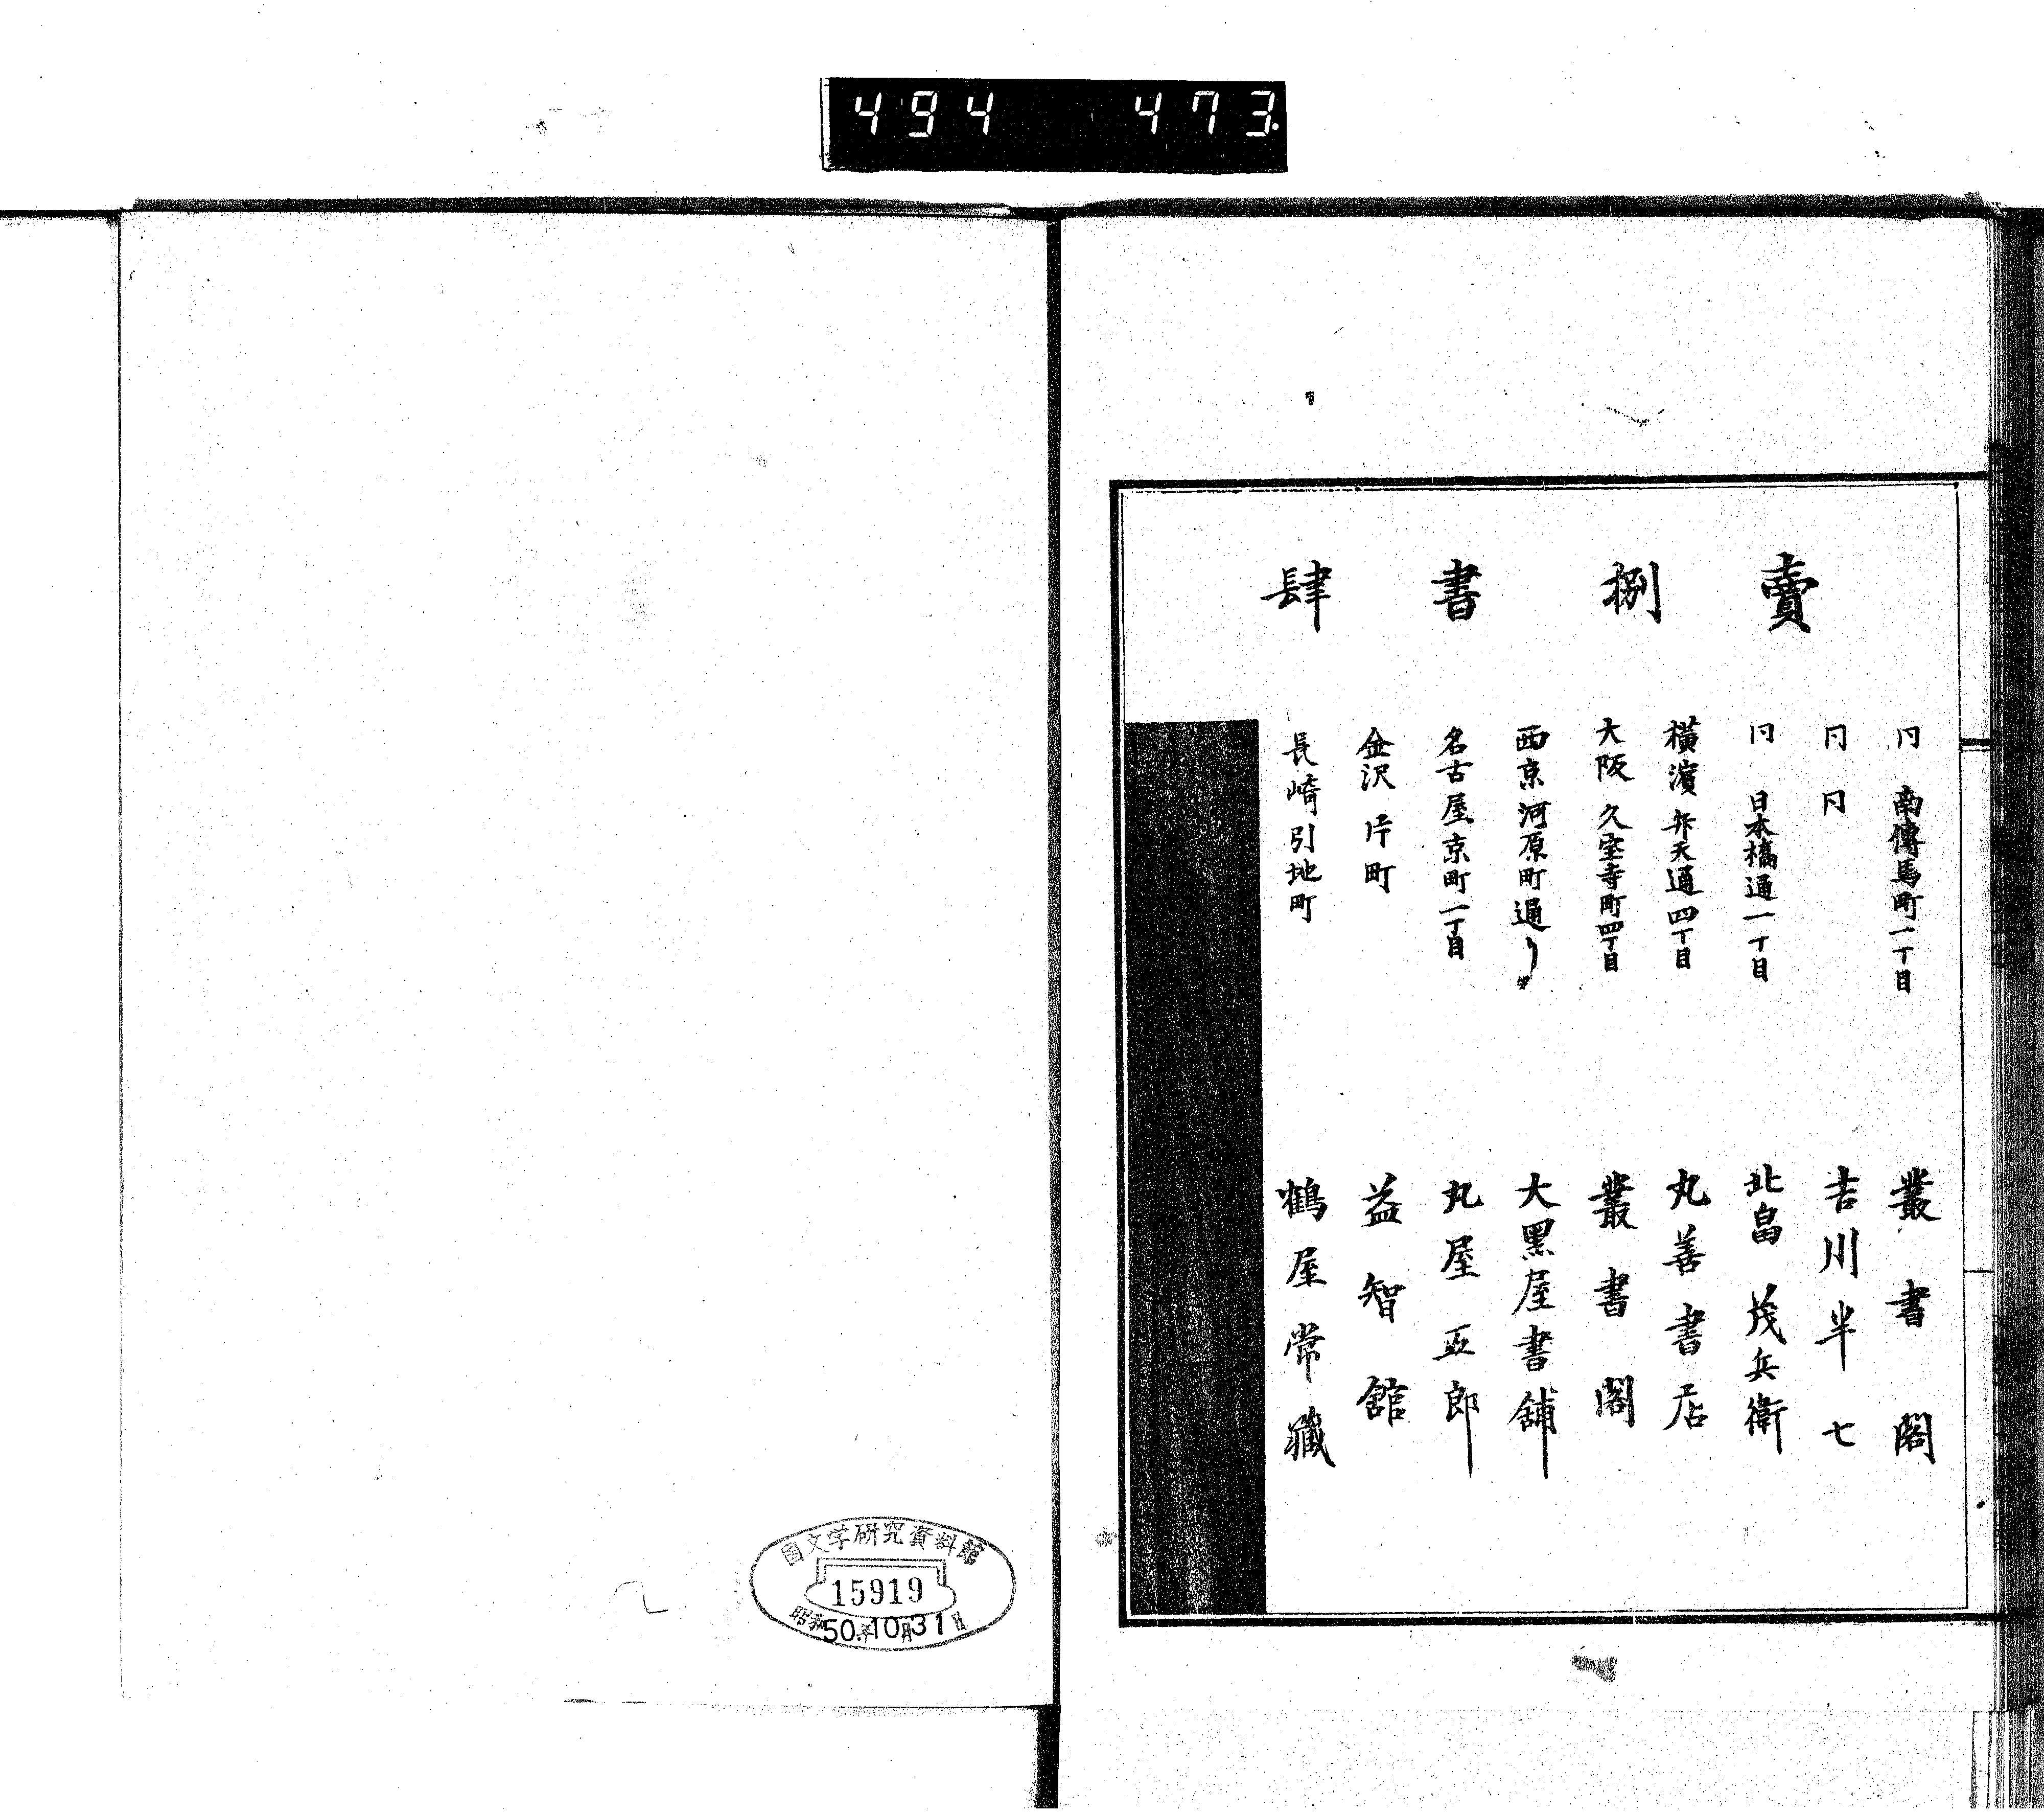 494 473.
賣捌書肆
同 南傳馬町一丁目 叢書閣
同 同 吉川半七
同 日本橋通一丁目 北畠茂兵衛
横濱弁天通四丁目 丸善書店
大阪久宝寺町四丁目 叢書閣
西京河原町通り 大黒屋書舖
名古屋京町一丁目 丸屋五郎
金沢片町 益智館
長崎引地町 鶴屋常藏
國文学研究資料館
15919
昭和50年10月31日